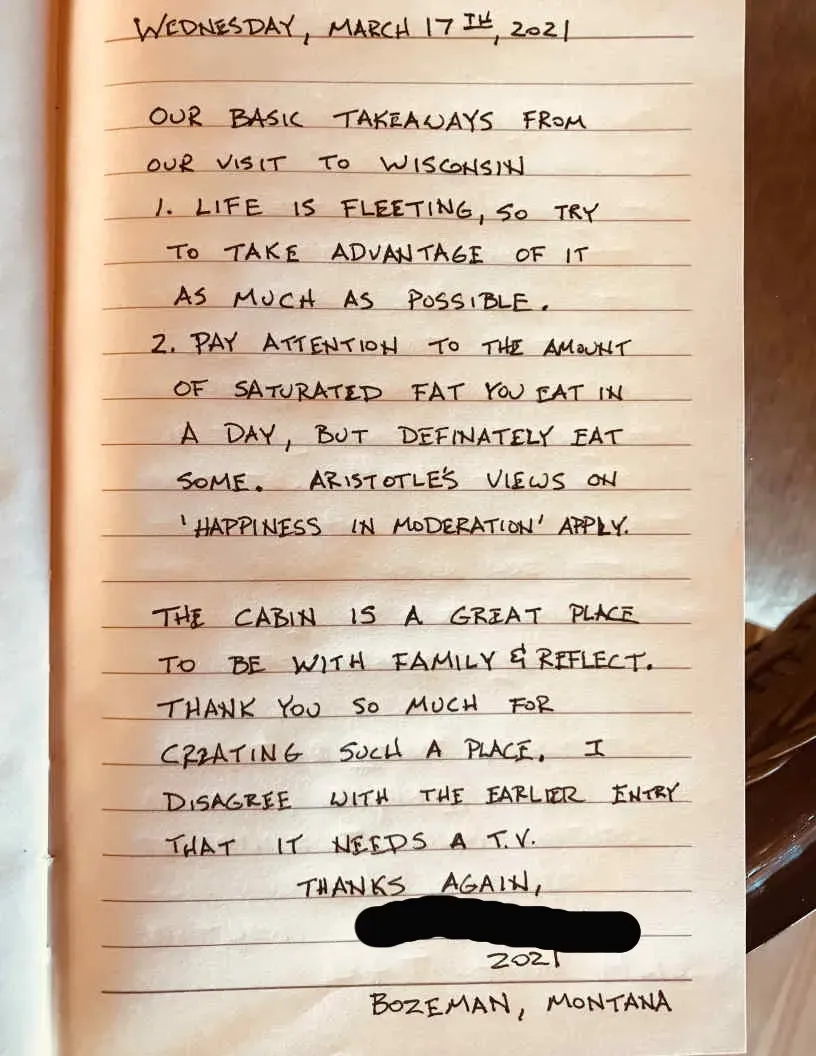 WEDNESDAY, MARCH 17TH, 2021
OUR BASIC TAKEAWAYS FROM
OUR VISIT TO WISCONSIN
1. LIFE IS FLEETING, SO TRY
TO TAKE ADVANTAGE OF IT
AS MUCH AS POSSIBLE.
2. PAY ATTENTION TO THE AMOUNT
OF SATURATED FAT YOU EAT IN
A DAY, BUT DEFINATELY EAT
SOME. ARISTOTLE'S VIEWS ON
'HAPPINESS IN MODERATION' APPLY.
THE CABIN IS A GREAT PLACE
TO BE WITH FAMILY & REFLECT.
THANK YOU SO MUCH FOR
CREATING SUCH A PLACE. I
DISAGREE WITH THE EARLIER ENTRY
THAT IT NEEDS A T.V.
THANKS AGAIN,
2021
BOZEMAN, MONTANA